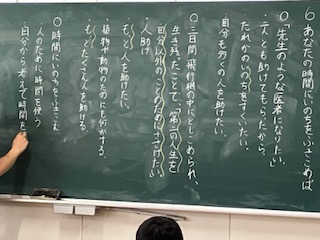 6 あなたの時間にいのちをふきこめば
○「先生のような医者になりたい。」
・二人とも助けてもらったから、
だれかのいのちをすくいたい。
・自分も多くの人を助けたい。
○三日間、飛行機の中にとじこめられ、
生き残ったことで、第二の人生を
自分以外のことのためにささげたい
・人助け
・もっと人を助けたい。
・植物や動物のためにも何かする。
・もっとたくさん人を助ける。
○時間にいのちをふきこむ
・人のために時間を使う
・自分から考えて時間を